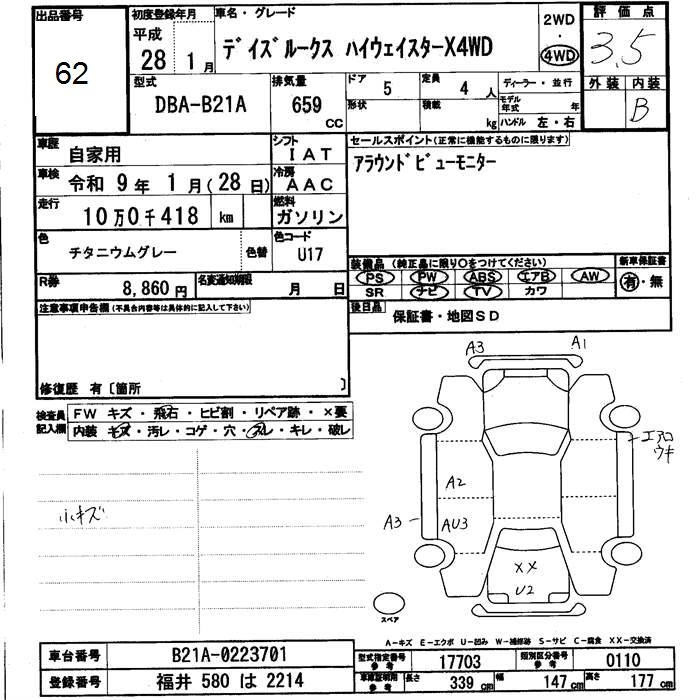 出品番号
62
初度登録年月
平成
28 1月
車名・グレード
デイズルークス ハイウェイスターX4WD
2WD
・
4WD
評価点
3.5
外装 内装
B
型式
DBA-B21A
排気量
659
CC
ドア 5
定員 4 人
形状
積載 kg
ディーラー・並行
モデル年式 年
ハンドル 左・右
車歴 自家用
シフト IAT
車検 令和 9年 1月(28日)
冷房 AAC
走行 10万0千418 km
燃料 ガソリン
色 チタニウムグレー 色替
色コード U17
R券 8,860円
名変通知期限 月 日
セールスポイント(正常に機能するものに限ります)
アラウンドビューモニター
装備品 (純正品に限り○をつけてください)
PS PW ABS エアB AW
SR ナビ TV カワ
新車保証書
有・無
後日品 保証書・地図SD
注意事項申告欄(不具合内容等は具体的に記入して下さい)
修復歴 有〔箇所 〕
検査員記入欄
FW キズ・飛石・ヒビ割・リペア跡・×要
内装 キズ・汚レ・コゲ・穴・スレ・キレ・破レ
小キズ
A3 A1
エアロ
ウキ
A2
A3 AU3
XX
U2
スペア
A-キズ E-エクボ U-凹み W-補修跡 S-サビ C-腐食 XX-交換済
車台番号 B21A-0223701
登録番号 福井 580 は 2214
型式指定番号 参考 17703
類別区分番号 参考 0110
車庫証明用 参考 長さ 339 cm 幅 147 cm 高さ 177 cm